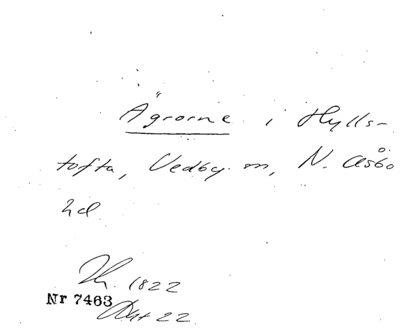 Ägrorne i Hylls-
tofta, Vedby m, N. Åsbo
hd
1822
Nr 7463
22